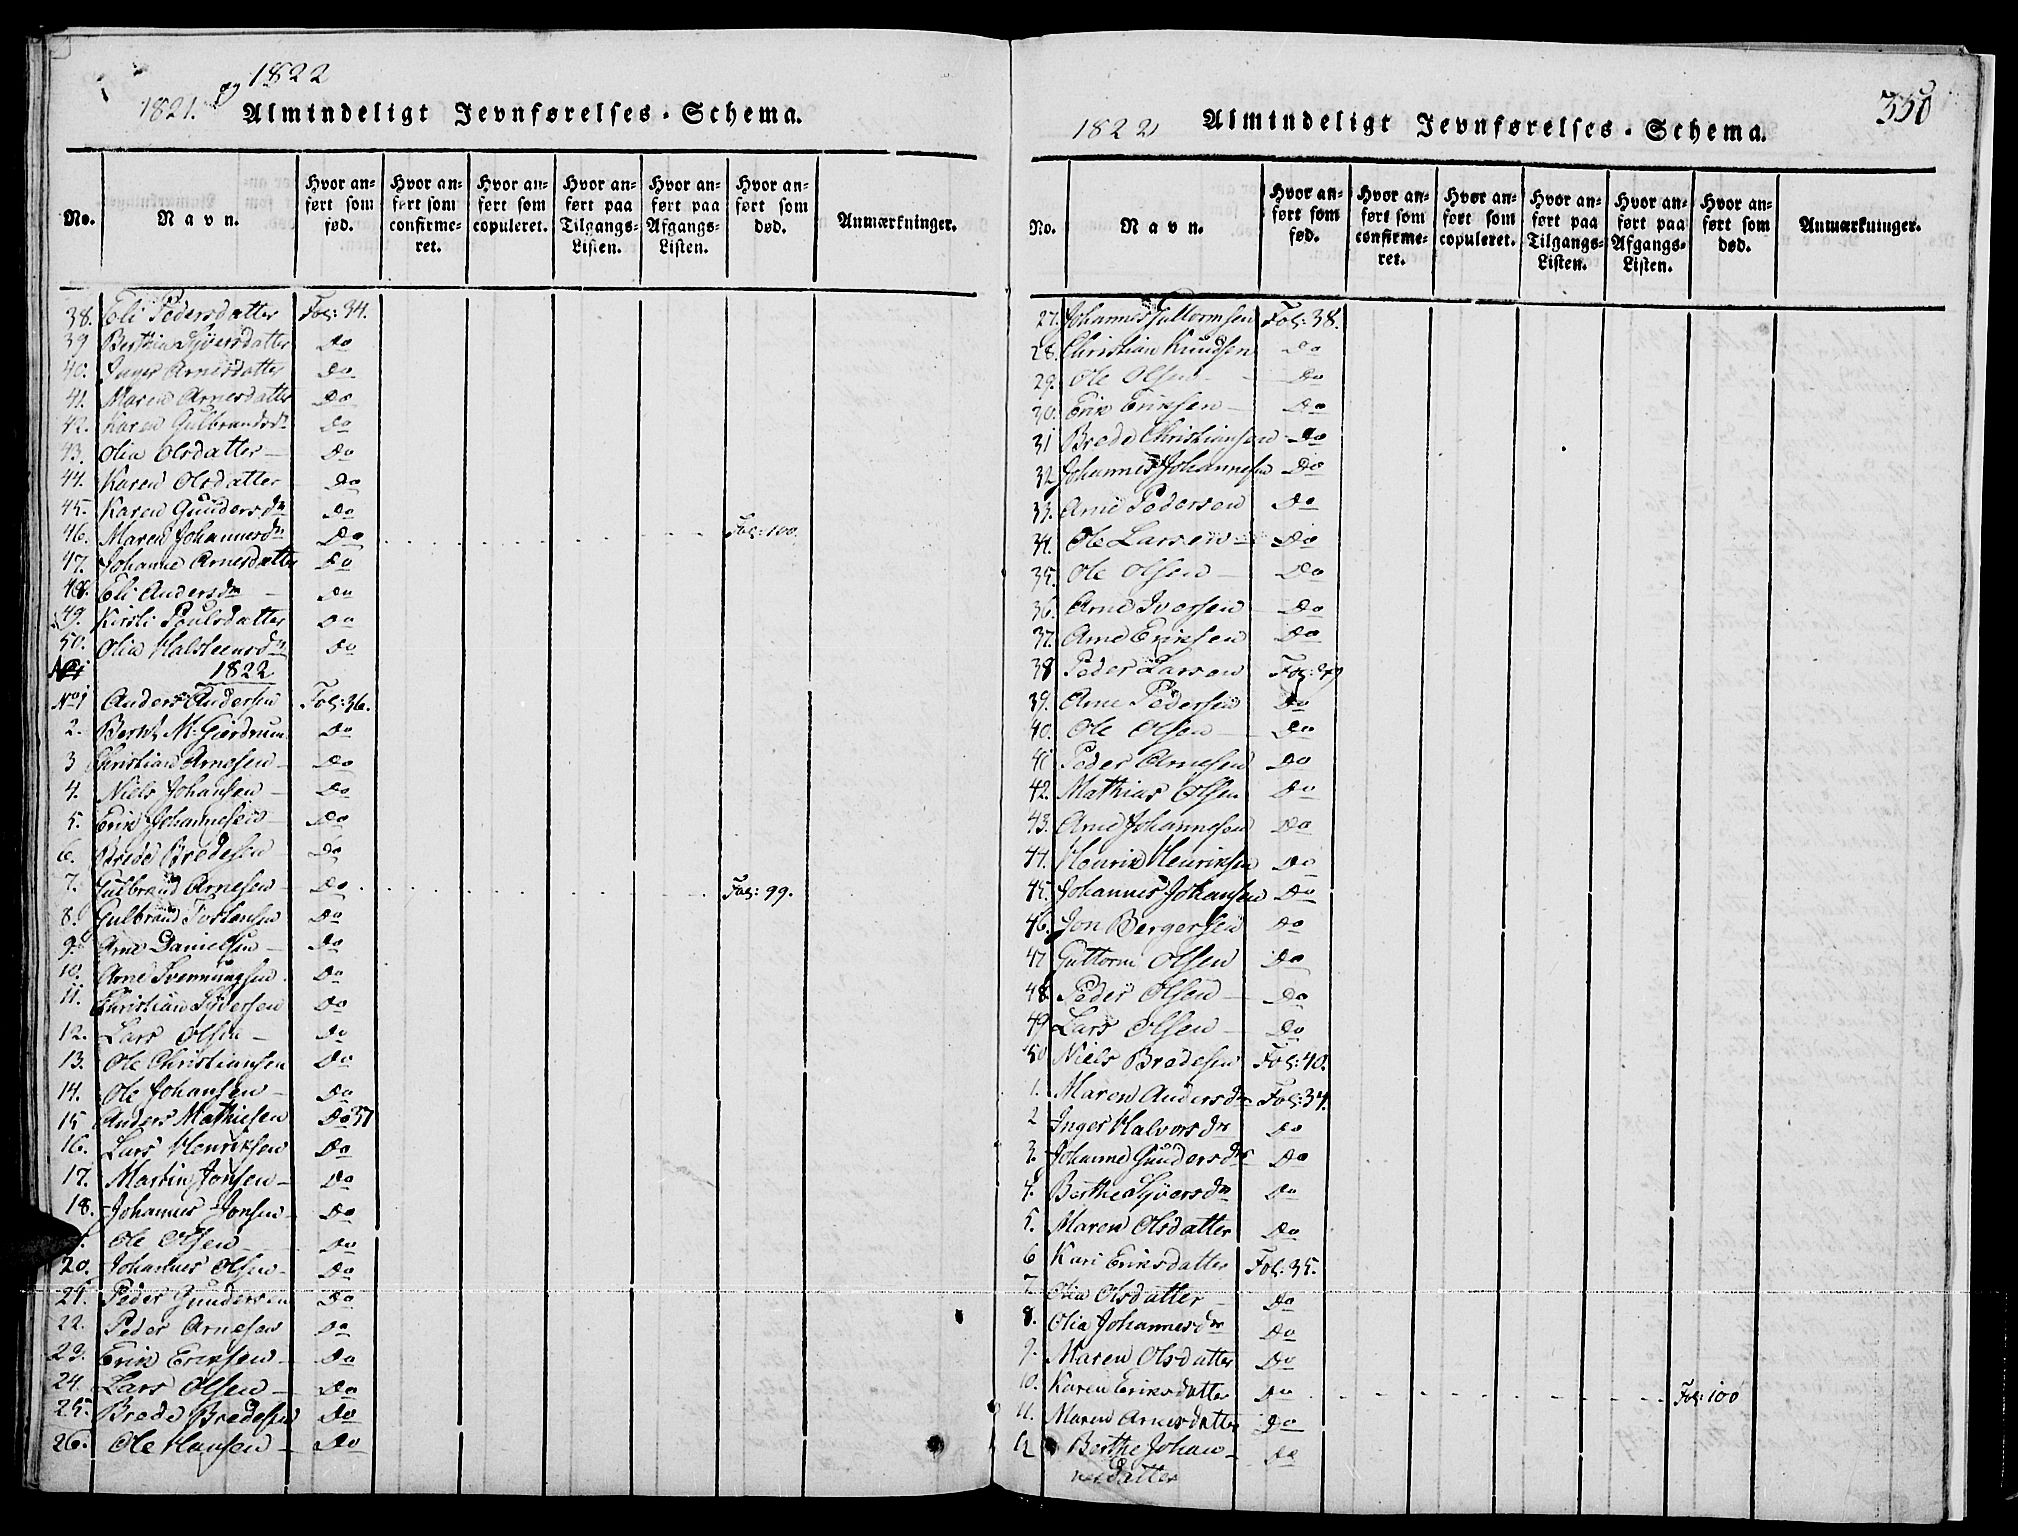 1821. og 1822
Almindeligt Jevnførelses-Schema.
No. Navn. Hvor anført som fød. Hvor anført som confirmeret. Hvor anført som copuleret. Hvor anført paa Tilgangs-Listen. Hvor anført paa Afgangs-Listen. Hvor anført som død. Anmærkninger.
38. Eli Pedersdatter Fol: 34.
39 Berthia Syversdatter Do
40. Inger Arnesdatter Do
41. Maren Arnesdatter Do
42. Karen Gulbrandsdr Do
43. Olia Olsdatter Do
44. Karen Olsdatter Do
45. Karen Gundersdr Do
46. Maren Johannesdr Do Fol: 100.
47. Johanne Arnesdatter Do
48. Eli Andersdr Do
49. Kirsti Poulsdatter Do
50. Olia Halsteensdr Do
1822
No 1 Anders Andersen Fol: 36.
2. Berth M. Gierdrum Do
3 Christian Arnesen Do
4. Niels Johansen Do
5. Erik Johannesen Do
6. Brede Bredesen Do
7. Gulbrand Arnesen Do Fol: 99.
8. Gulbrand Torstensen Do
9. Arne Danielsen Do
10. Arne Svenningsen Do
11. Christian Syversen Do
12. Lars Olsen Do
13. Ole Christiansen Do
14. Ole Johansen Do
15 Anders Mathiesen Do 37
16. Lars Henriksen Do
17. Martin Jonsen Do
18. Johannes Jonsen Do
Ole Olsen Do
20. Johannes Olsen Do
21. Peder Gundersen Do
22. Peder Arnesen Do
23. Erik Eriksen Do
24. Lars Olsen Do
25. Brede Bredesen Do
26. Ole Hansen Do
350
1822
Almindeligt Jevnførelses-Schema.
No. Navn. Hvor anført som fød. Hvor anført som confirmeret. Hvor anført som copuleret. Hvor anført paa Tilgangs-Listen. Hvor anført paa Afgangs-Listen. Hvor anført som død. Anmærkninger.
27. Johannes Guttormsen Fol: 38.
28. Christian Knudsen Do
29. Ole Olsen Do
30. Erik Eriksen Do
31 Brede Christiansen Do
32 Johannes Johannesen Do
33. Arne Pedersen Do
34. Ole Larsen Do
35. Ole Olsen Do
36. Arne Iversen Do
37. Arne Eriksen Do
38 Peder Larsen Fol: 39
39. Arne Pedersen Do
40. Ole Olsen Do
41 Peder Arnesen Do
42. Mathias Olsen Do
43. Arne Johannesen Do
44. Henrik Henriksen Do
45. Johannes Johansen Do
46. Jon Bergersen Do
47 Guttorm Olsen Do
48 Peder Olsen Do
49 Lars Olsen Do
50 Niels Bredesen Fol: 40.
1. Maren Andersdr Fol: 34.
2 Inger Halvorsdr Do
3. Johanne Gundersdr Do
4. Berthe Syversdr Do
5. Maren Olsdatter Do
6 Kari Eriksdatter Fol: 35.
7. Olia Olsdatter Do
8. Olia Johannesdr Do
9. Maren Olsdatter Do
10. Karen Eriksdatter Do Fol: 100
11. Maren Arnesdatter Do
12 Berthe Johan- Do
nesdatter